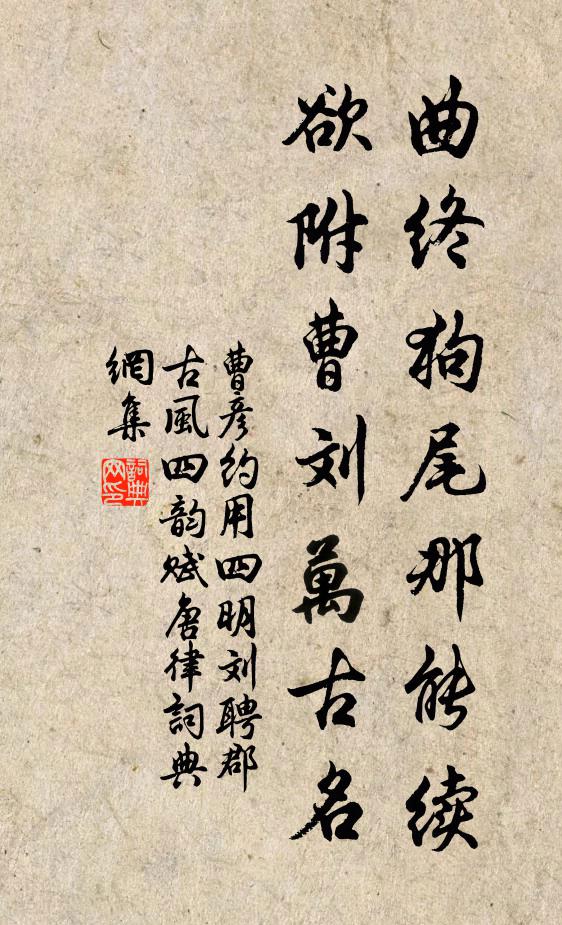 曲终狗尾那能续
欲附曹刘萬古名
曹彦约用四明刘聘郡
古風四韵赋唐律詞典
網集
詞典
网印